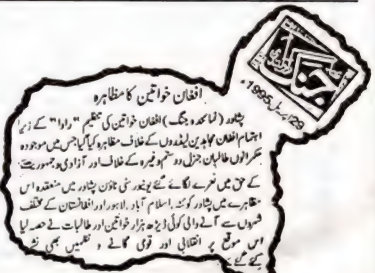 جنگ
29 اپریل 1995ء
افغان خواتین کا مظاہرہ
پشاور (نمائندہ جنگ) افغان خواتین کی تنظیم "راوا" کے زیر
اہتمام افغان مجاہدین لیڈروں کے خلاف مظاہرہ کیا گیا جس میں موجودہ
حکمرانوں طالبان جنرل دوستم وغیرہ کے خلاف اور آزادی و جمہوریت
کے حق میں نعرے لگائے گئے یونیورسٹی ٹاؤن پشاور میں منعقدہ اس
مظاہرے میں پشاور کوئٹہ، اسلام آباد، لاہور اور افغانستان کے مختلف
شہروں سے آنے والی کوئی ڈیڑھ ہزار خواتین اور طالبات نے حصہ لیا
اس موقع پر انقلابی اور قومی گانے و نظمیں بھی نشر
کئے گئے